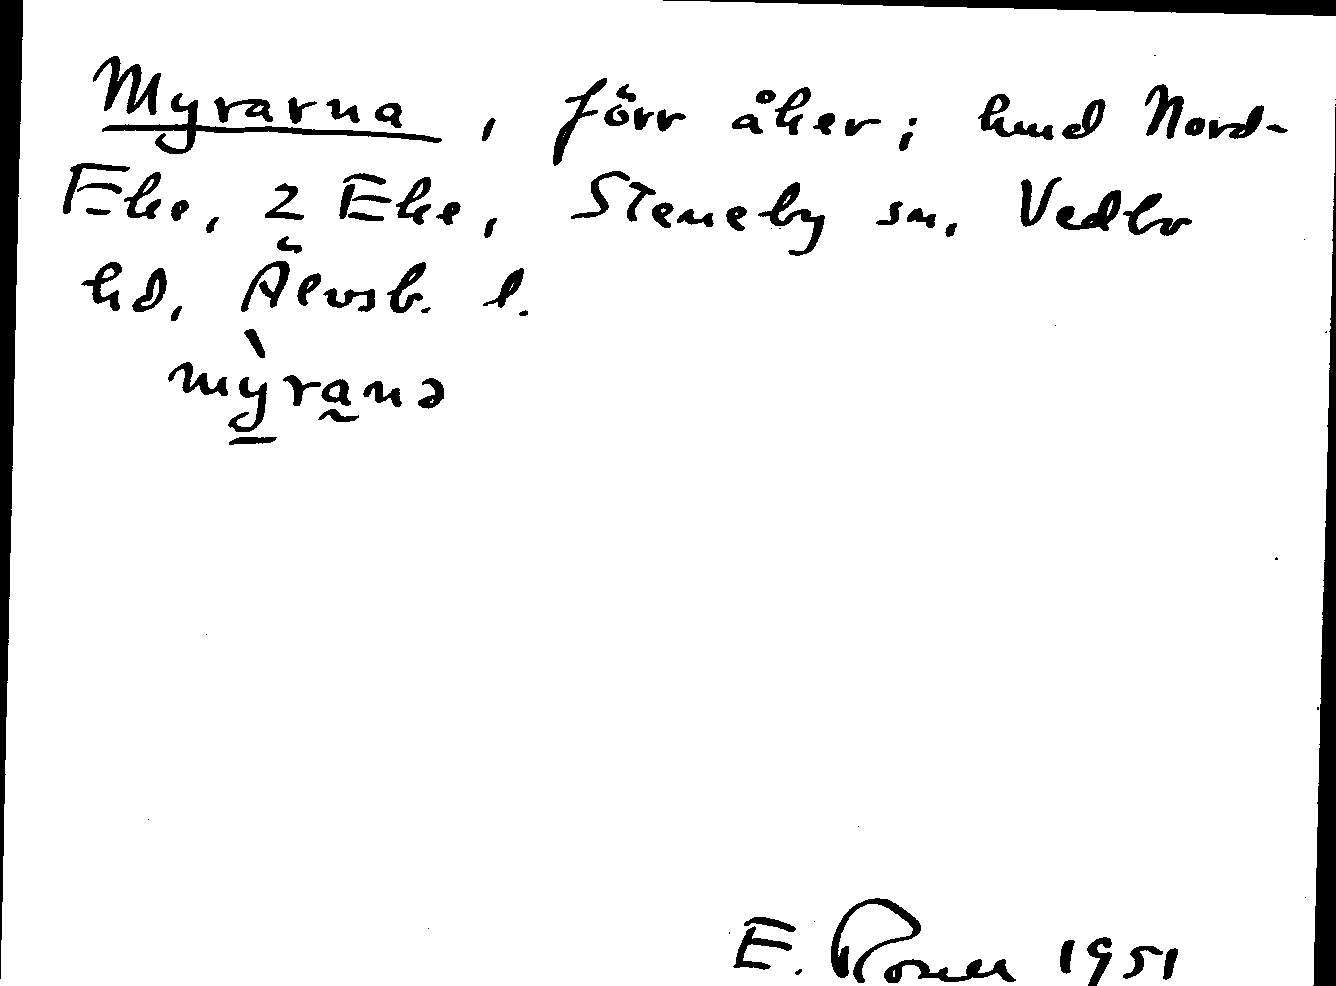 Myrarna, förr åker; hmd Nord-
Eke, 2 Eke, Steneby sn. Vedbo
hd, Älvsb. l.
mỳranə
E. Rosell 1951